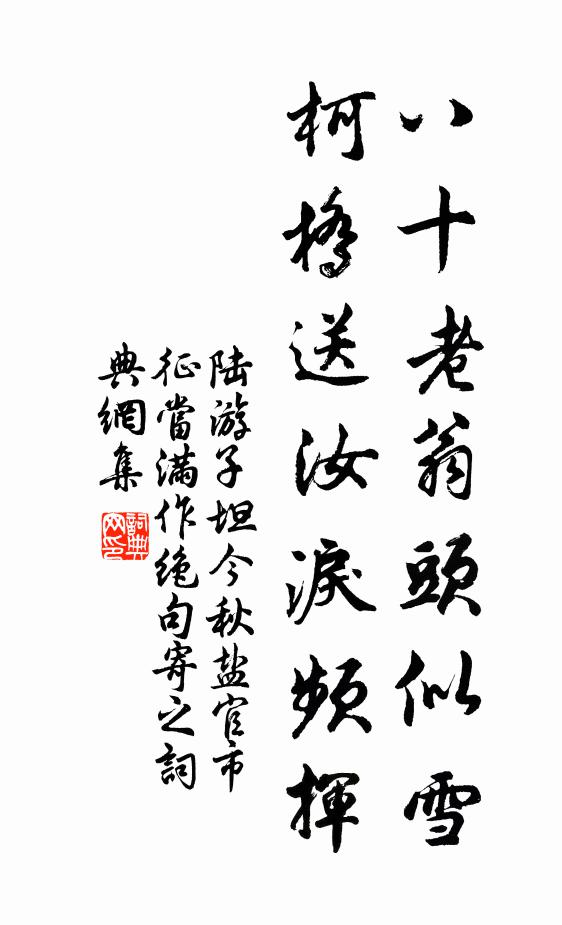 八十老翁頭似雪
柯橋送汝淚頻揮
陆游子坦今秋盐官市
征當滿作绝句寄之詞
典網集
詞典
网印